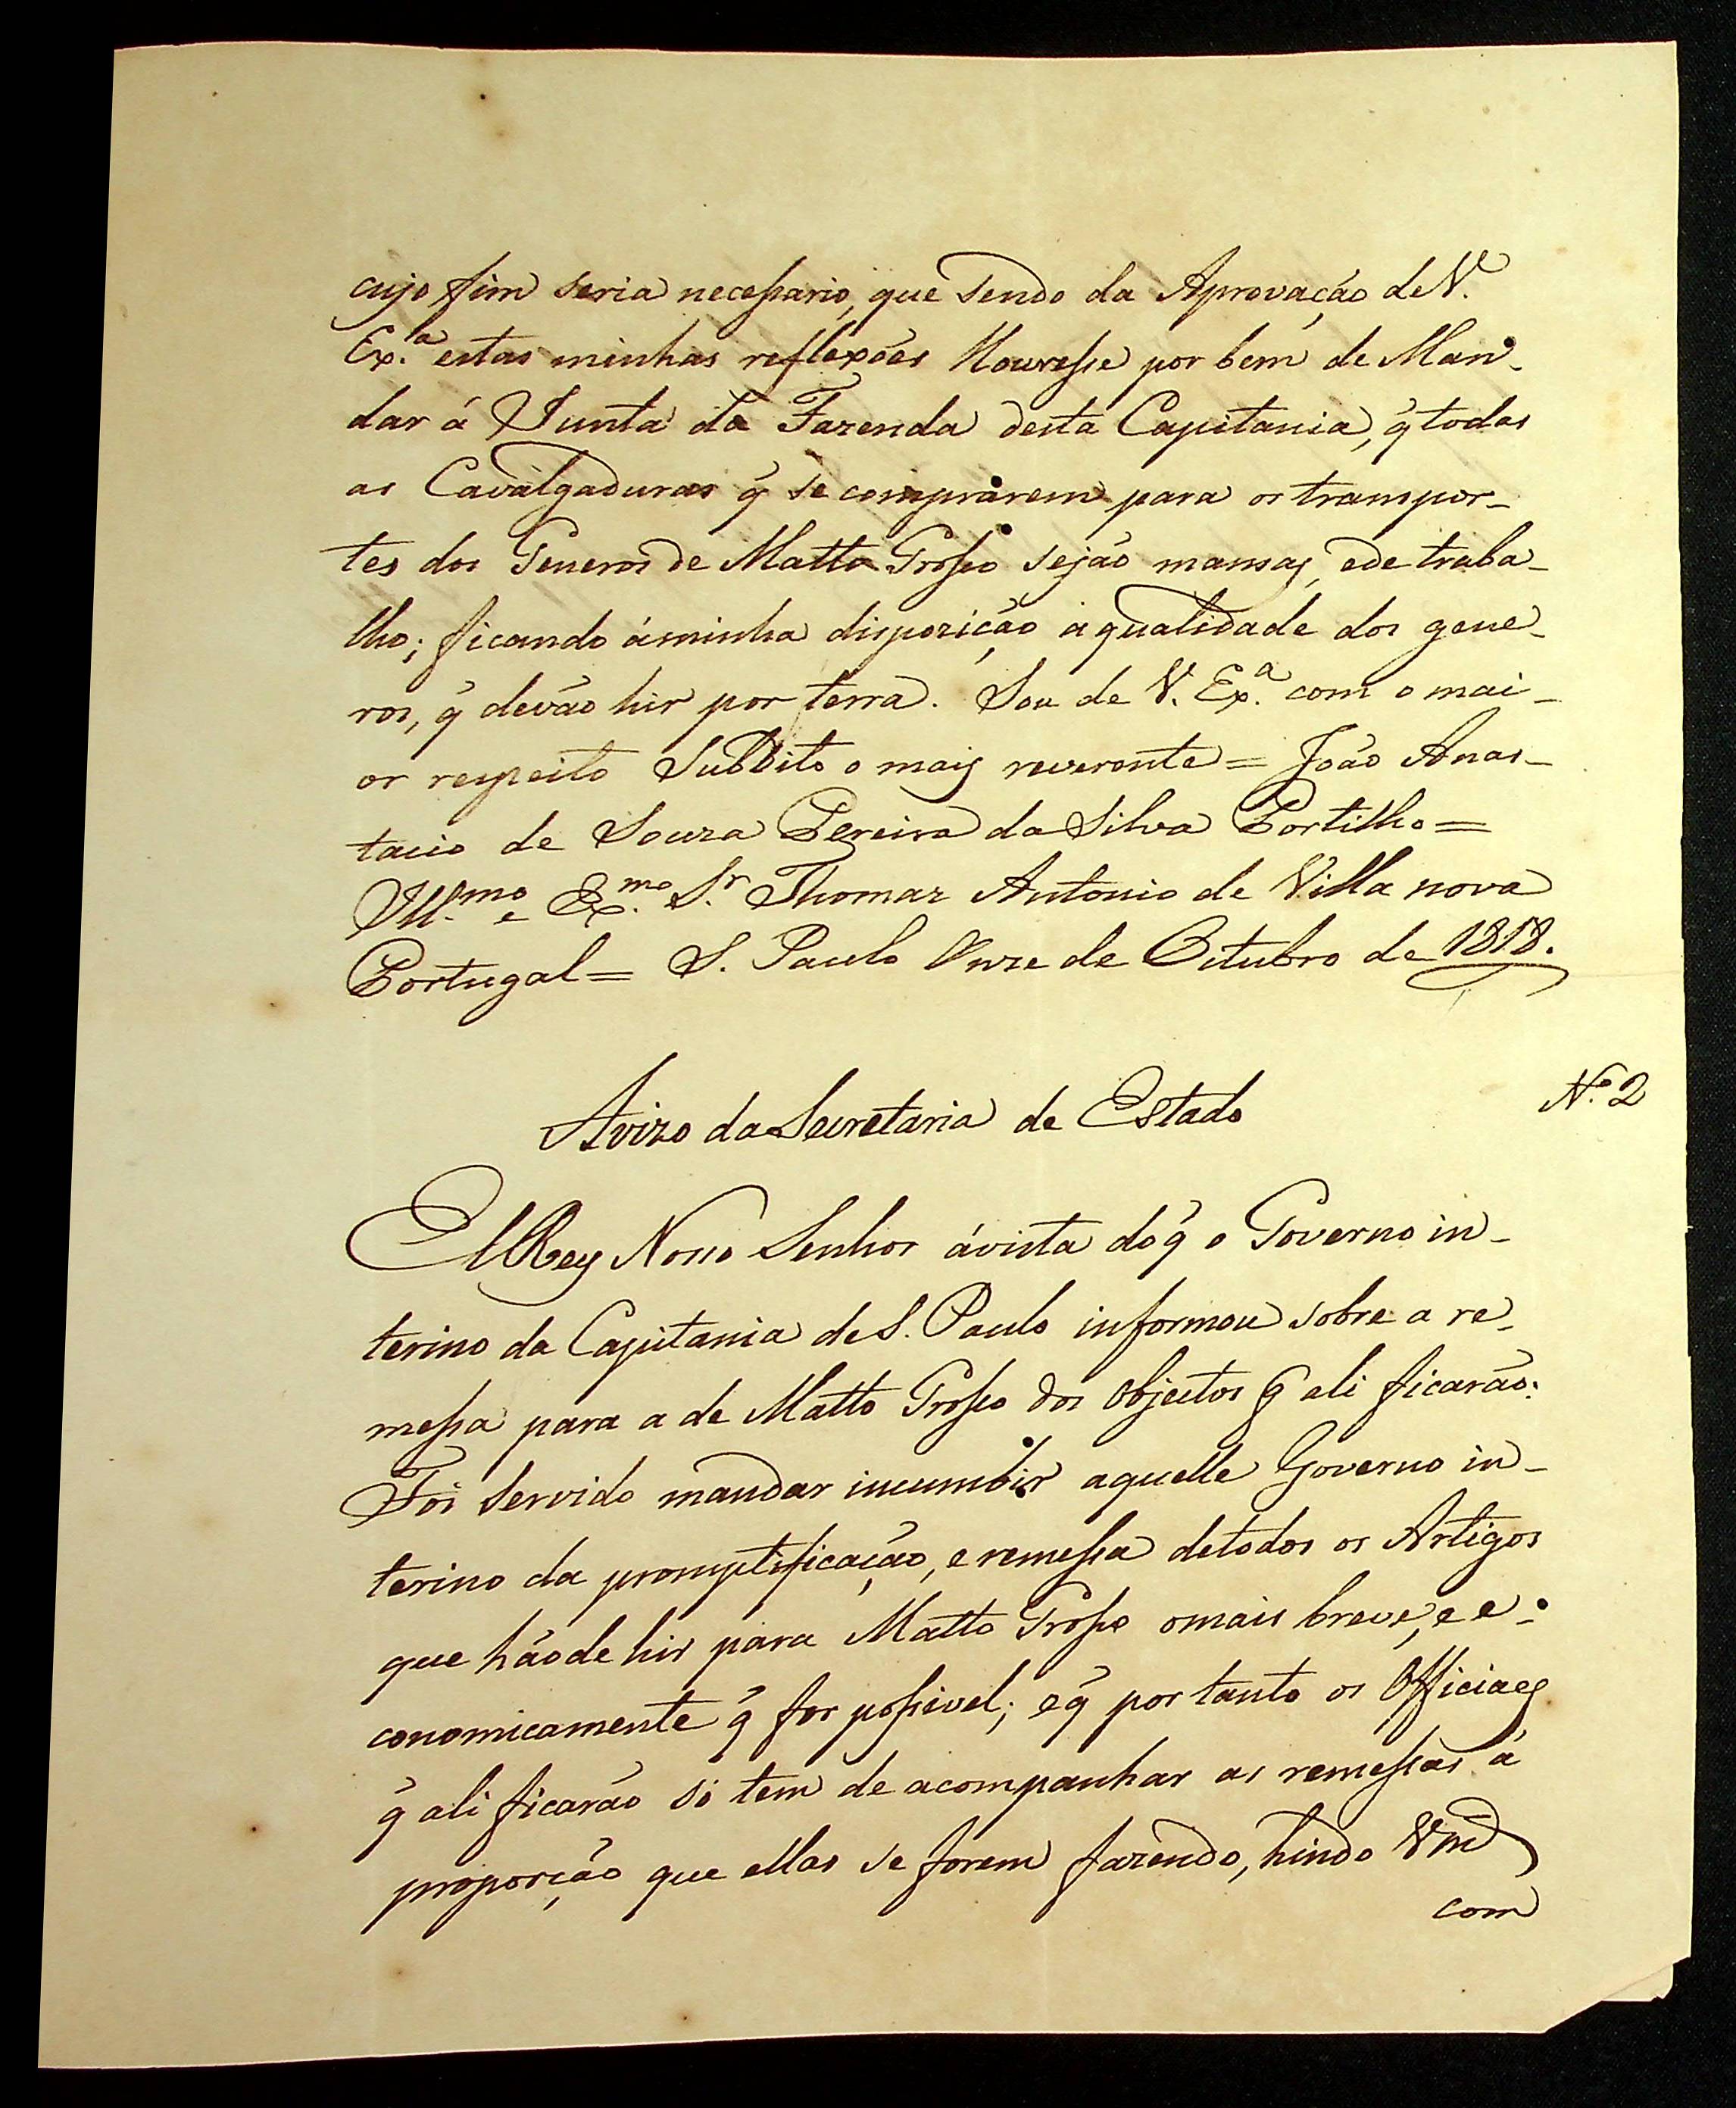 cujo fim seria necessario, que sendo da Aprovação de V.
Ex.ª estas minhas reflexões Houvesse por bem de Man-
dar á Junta da Fazenda desta Capitania, q̃ todas
as Cavalgaduras q̃ se comprarem para os transpor-
tes dos Generos de Matto Grosso sejão mansas, ede traba-
lho; ficando áminha dispozição a qualidade dos gene-
ros, q̃ devão hir por terra. Sou de V. Ex.ª com o mai-
or respeito Subdito o mais reverente = João Anas-
tacio de Souza Pereira da Silva Portilho =
Ill.mo e Ex.mo S.r Thomaz Antonio de Villa nova
Portugal = S. Paulo Onze de Outubro de 1818.
Avizo da Secretaria de Estado
N.º 2
ElRey Nosso Senhor ávista do q̃ o Governo in-
terino da Capitania de S. Paulo informou sobre a re-
messa para a de Matto Grosso dos Objectos q̃ ali ficarão:
Foi servido mandar incumbir aquelle Governo in-
terino da promptificação, e remessa detodos os Artigos
que hãode hir para Matto Grosso omais breve, e e-
conomicamente q̃ for possivel; eq̃ por tanto os Officiaes
q̃ ali ficarão só tem de acompanhar as remessas á
proporção que ellas se forem fazendo, hindo Vm.ce
com